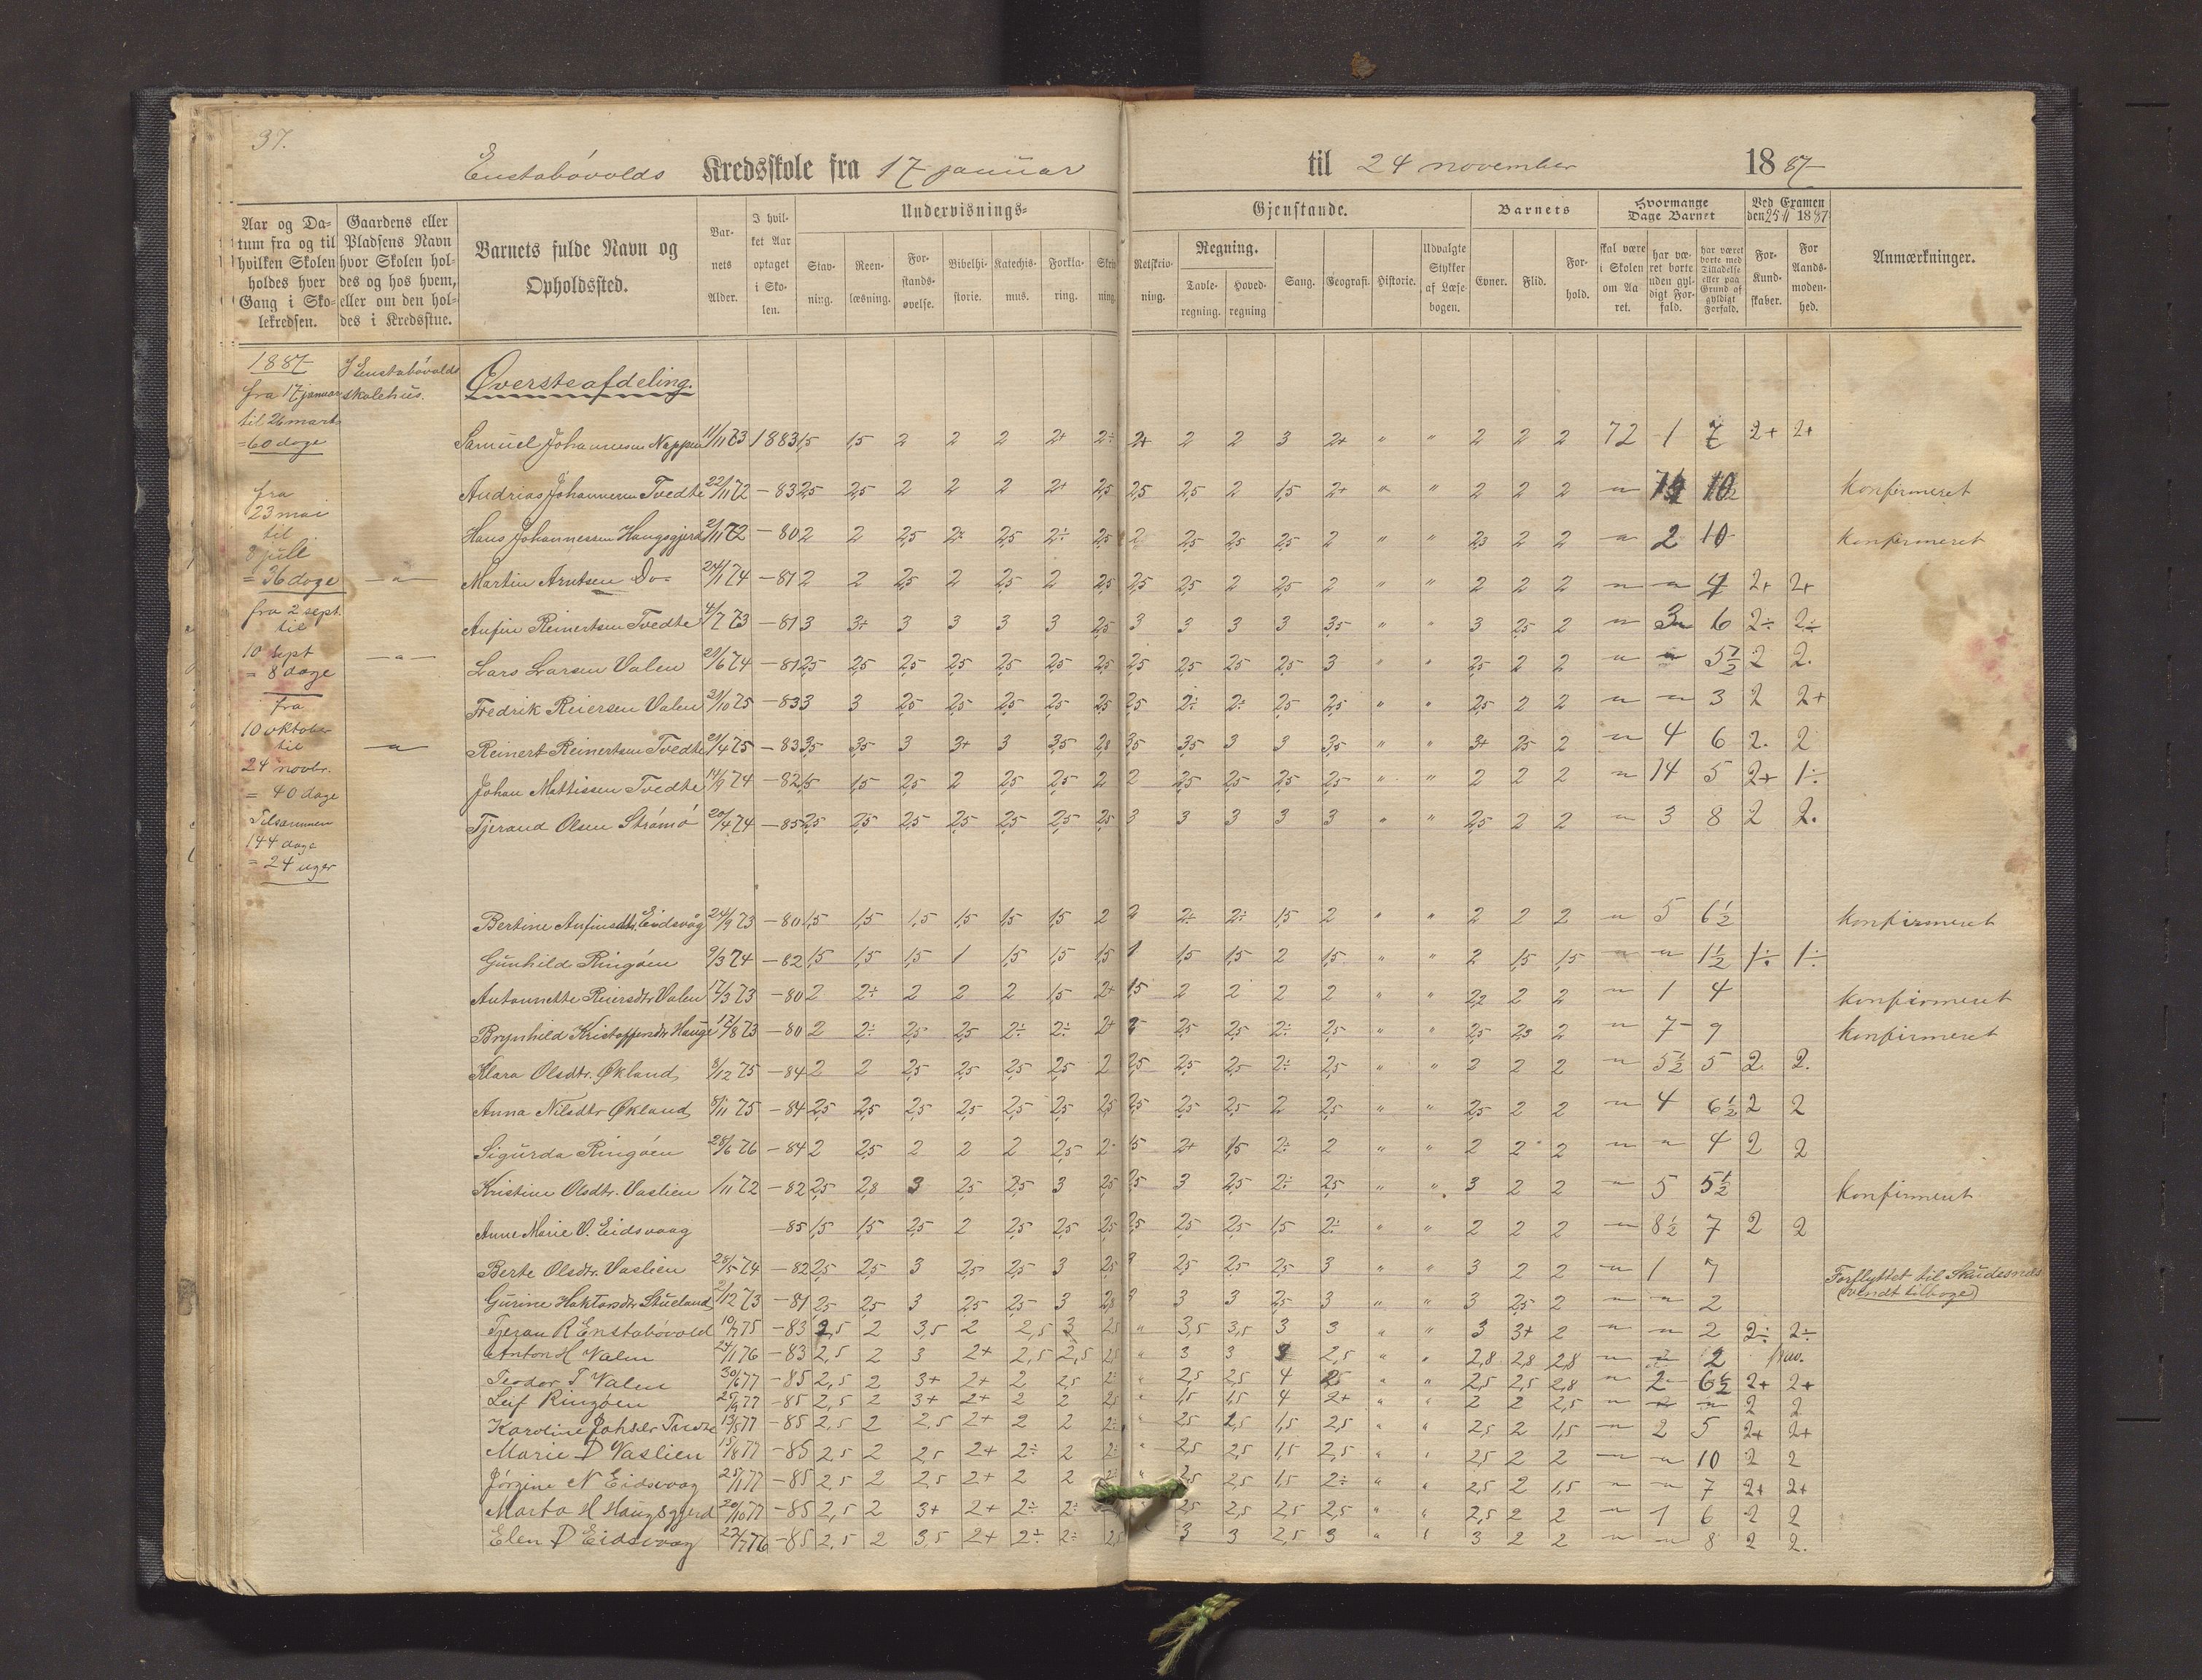 37.
Enstabóvolds Kredsskole fra 17 januar til 24 november 1887
Aar og Datum fra og til hvilken Skolen holdes hver Gang i Skolekredsen.
Gaardens eller Pladsens Navn hvor Skolen holdes og hos hvem, eller om den holdes i Kredsstue.
Barnets fulde Navn og Opholdssted.
Barnets Alder.
I hvilket Aar optaget i Skolen.
Undervisnings-Gjenstande.
Stavning.
Reenlæsning.
Forstandsøvelse.
Bibelhistorie.
Katechismus.
Forklaring.
Retskrivning.
Regning.
Tavleregning.
Hovedregning
Sang.
Geografi.
Historie.
Udvalgte Stykker af Læsebogen.
Barnets
Evner.
Flid.
Forhold.
Hvormange Dage Barnet
skal være i Skolen om Aaret.
har været borte uden gyldigt Forfald.
har været borte med Tilladelse eller paa Grund af gyldigt Forfald.
Ved Examen den 25/11 1887
For Kundskaber.
For Aandsmodenhed.
Anmærkninger.
1887
fra 17 januar
til 26 marts
= 60 dage
I Enstabóvolds
skolehus.
fra
23 mai
til
8 juli
= 36 dage
fra 2 sept.
til
10 sept
= 8 dage
fra
10 oktober
til
24 novbr.
= 40 dage
Tilsammen
144 dage
= 24 uger
Øversteafdeling.
Samuel Johannesen Neppen 11/11 73 1883 1,5 1,5 2 2 2 2+ 2÷ 2+ 2 2 3 2+ " " 2 2 2 72 1 7 2+ 2+
Andrias Johannesen Tvedte 22/11 72 –83 2,5 2,5 2 2 2 2+ 2,5 2,5 2,5 2 1,5 2+ " " 2 2 2 konfirmeret
Hans Johannessen Haugsgjerd 2/11 72 –80 2 2 2,5 2÷ 2,5 2÷ 2,5 2 2,5 2,5 2,5 2 " " 2,3 2 2 2 10 konfirmeret
Martin Arntsen Do= 24/1 74 –81 2 2 2,5 2 2,5 2 2,5 2,5 2,5 2 2,5 2 " " 2 2 2 4 2+ 2+
Anfin Reinertsen Tvedte 4/7 73 –81 3 3+ 3 3 3 3 2,5 3 3 3 3 3,5 " " 3 2,5 2 3 6 2÷ 2÷
Lars Larsen Valen 29/6 74 –81 2,5 2,5 2,5 2,5 2,5 2,5 2,5 2,5 2,5 2,5 2,5 3 " " 2,5 2 2 5 1/2 2 2.
Fredrik Reiersen Valen 21/10 75 –83 3 3 2,5 2,5 2,5 2,5 2,5 2,5 2÷ 2÷ 2,5 2,5 " " 2,5 2 2 3 2 2+
Reinert Reinertsen Tvedte 21/4 75 –83 3,5 3,5 3 3+ 3 3,5 2,8 3,5 3,5 3 3 3,5 " " 3+ 2,5 2 4 6 2. 2
Johan Mattissen Tvedte 14/9 74 –82 1,5 1,5 2,5 2 2,5 2,5 2 2 2,5 2,5 2,5 2,5 " " 2 2 2 14 5 2+ 1÷
Tjerand Olsen Strómó 20/4 74 –85 2,5 2,5 2,5 2,5 2,5 2,5 2,5 3 3 3 3 3 " " 2,5 2 2 3 8 2 2.
Bertine Anfinsdtr. Eidsvåg 24/9 73 –80 1,5 1,5 1,5 1,5 1,5 1,5 2 2 2÷ 2÷ 1,5 2 " " 2 2 2 5 6 1/2 konfirmeret
Gunhilde Ringóen 9/3 74 –82 1,5 1,5 1,5 1 1,5 1,5 1,5 1 1,5 1,5 2 1,5 " " 2 1,5 1,5 1 1/2 1÷ 1÷
Antonnette Reiersdtr Valen 17/3 73 –80 2 2÷ 2 2 2 1,5 2+ 1,5 2 2 2 2 " " 2,2 2 2 1 4 konfirmeret
Brynhild Kristoffersdtr Hauge 12/8 73 –80 2 2÷ 2,5 2,5 2÷ 2÷ 2+ 2,5 2,5 2÷ 2,5 " " 2,5 2,3 2 7 9 konfirmeret
Klara Olsdtr. Økland 8/12 75 –84 2 2 2,5 2,5 2,5 2,5 2 2,5 2,5 2,5 2÷ 2,5 " " 2 2 2 5 1/2 5 2. 2.
Anna Nilsdtr Økland 8/11 75 –84 2,5 2,5 2,5 2,5 2,5 2,5 2,5 2,5 2,5 2,5 2 2,5 " " 2,5 2 2 4 6 1/2 2 2
Sigurda Ringóen 28/6 76 –84 2 2,5 2 2 2 2,5 2 1,5 2+ 1,5 2÷ 2 " " 2 2 2 4 2 2
Kristine Olsdtr. Vaslien /11 72 –82 2,5 2,8 3 2,5 2,5 3 2,5 2,5 3 2,5 2÷ 2,5 " " 3 2 2 5 5 1/2 konfirmeret
Anne Marie O. Eidsvaag –85 1,5 1,5 2,5 2 2,5 2,5 2,5 2,5 2,5 2,5 1,5 2÷ " " 2 2 2 8 1/2 7 2 2
Berte Olsdtr. Vaslien 28/5 74 –82 2,5 2,5 3 2,5 2,5 3 2,5 2,5 2,5 2,5 3 " " 3 2 2 1 7 Forflyttet til Skudesnæs
Gurine Haktorsdtr Stueland 2/12 73 –81 2,5 2,5 3 2,5 2,5 3 2,8 3 3 2,5 3 " " 3 2,5 2 2 (vendt tilbage)
Tjeran R Enstabóvold 10/7 75 –83 2,5 2 3,5 2 2,5 3 2,5 " 3,5 3,5 3 3 " " 3 3+ 2 2 2÷ 2÷
Anton H Valen 24/1 76 –83 2,5 2 3 2+ 2,5 2,5 2,5 " 3 3 3 2,5 " " 2,8 2,8 2,8 2
Teodor T Valen 30/6 77 –85 2,5 2 3+ 2+ 2 2,5 " 2,5 2,5 4 2,5 " " 2,5 2,5 2,8 2 6 1/2 2+ 2+
Leif Ringóen 25/9 77 –85 2,5 2 3+ 2+ 2 2 2,5 " 1,5 1,5 4 2+ " " 2 2 2,5 2 2
Karoline Johsdtr Tvedte 13/5 77 –85 2,5 2 2,5 2+ 2 2 2÷ " 2,5 2,5 1,5 2,5 " " 2,5 2 1,5 2 5 2+ 2+
Marie D Vaslien 15/8 77 –85 2,5 2 2,5 2+ 2÷ 2 " 2,5 2,5 1,5 2,5 " " 2,5 2 2 10 2 2
Jórgine N Eidsvaag 25/1 77 –85 2,5 2 2,5 2+ 2 2 " 2,5 2,5 1,5 2÷ " " 2,5 2 1,5 7 2+ 2+
Marta H Haugsgjerd 20/10 77 –85 2,5 2 3+ 2+ 2÷ 2÷ " 2,5 2,5 2,5 2,5 " " 2,5 2 2 1 6 2 2
Elen D Eidsvaag 27/7 76 –85 2,5 2 3,5 2+ 2÷ 2÷ 2,5 3 3 2,5 3 " " 3 2 2 8 2 2.